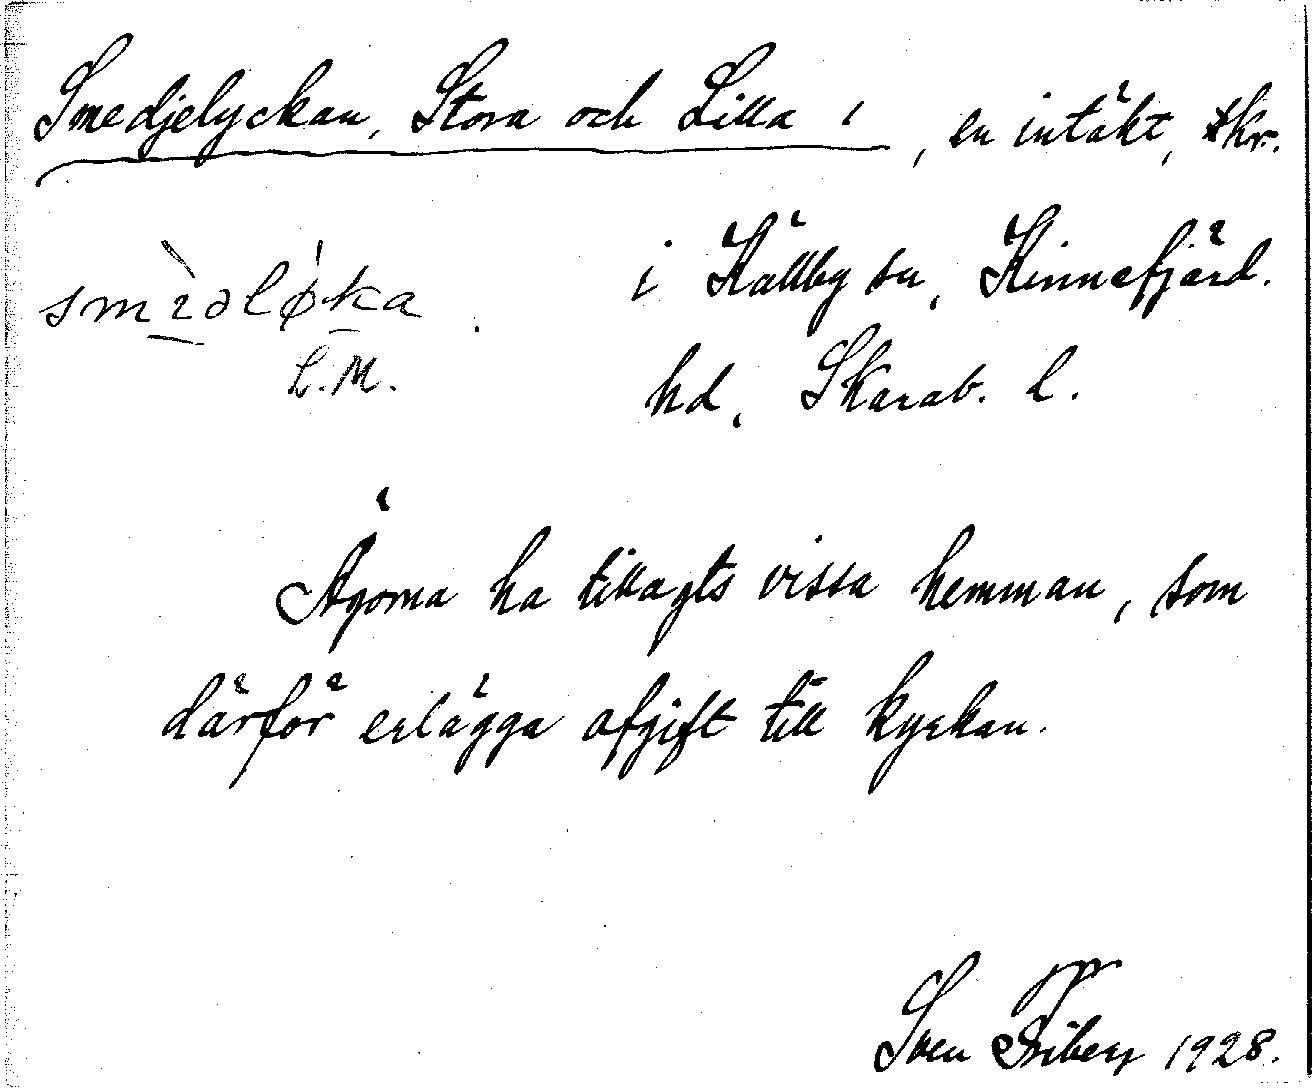 Smedjelyckan, Stora och Lilla, en intäkt, skr.
i Källby sn, Kinnefjärd.
smìdəløka
L.M.
hd, Skarab. l.
Ägorna ha tillagts vissa hemman, som
därför erlägga afgift till kyrkan.
Sven Friberg 1928.